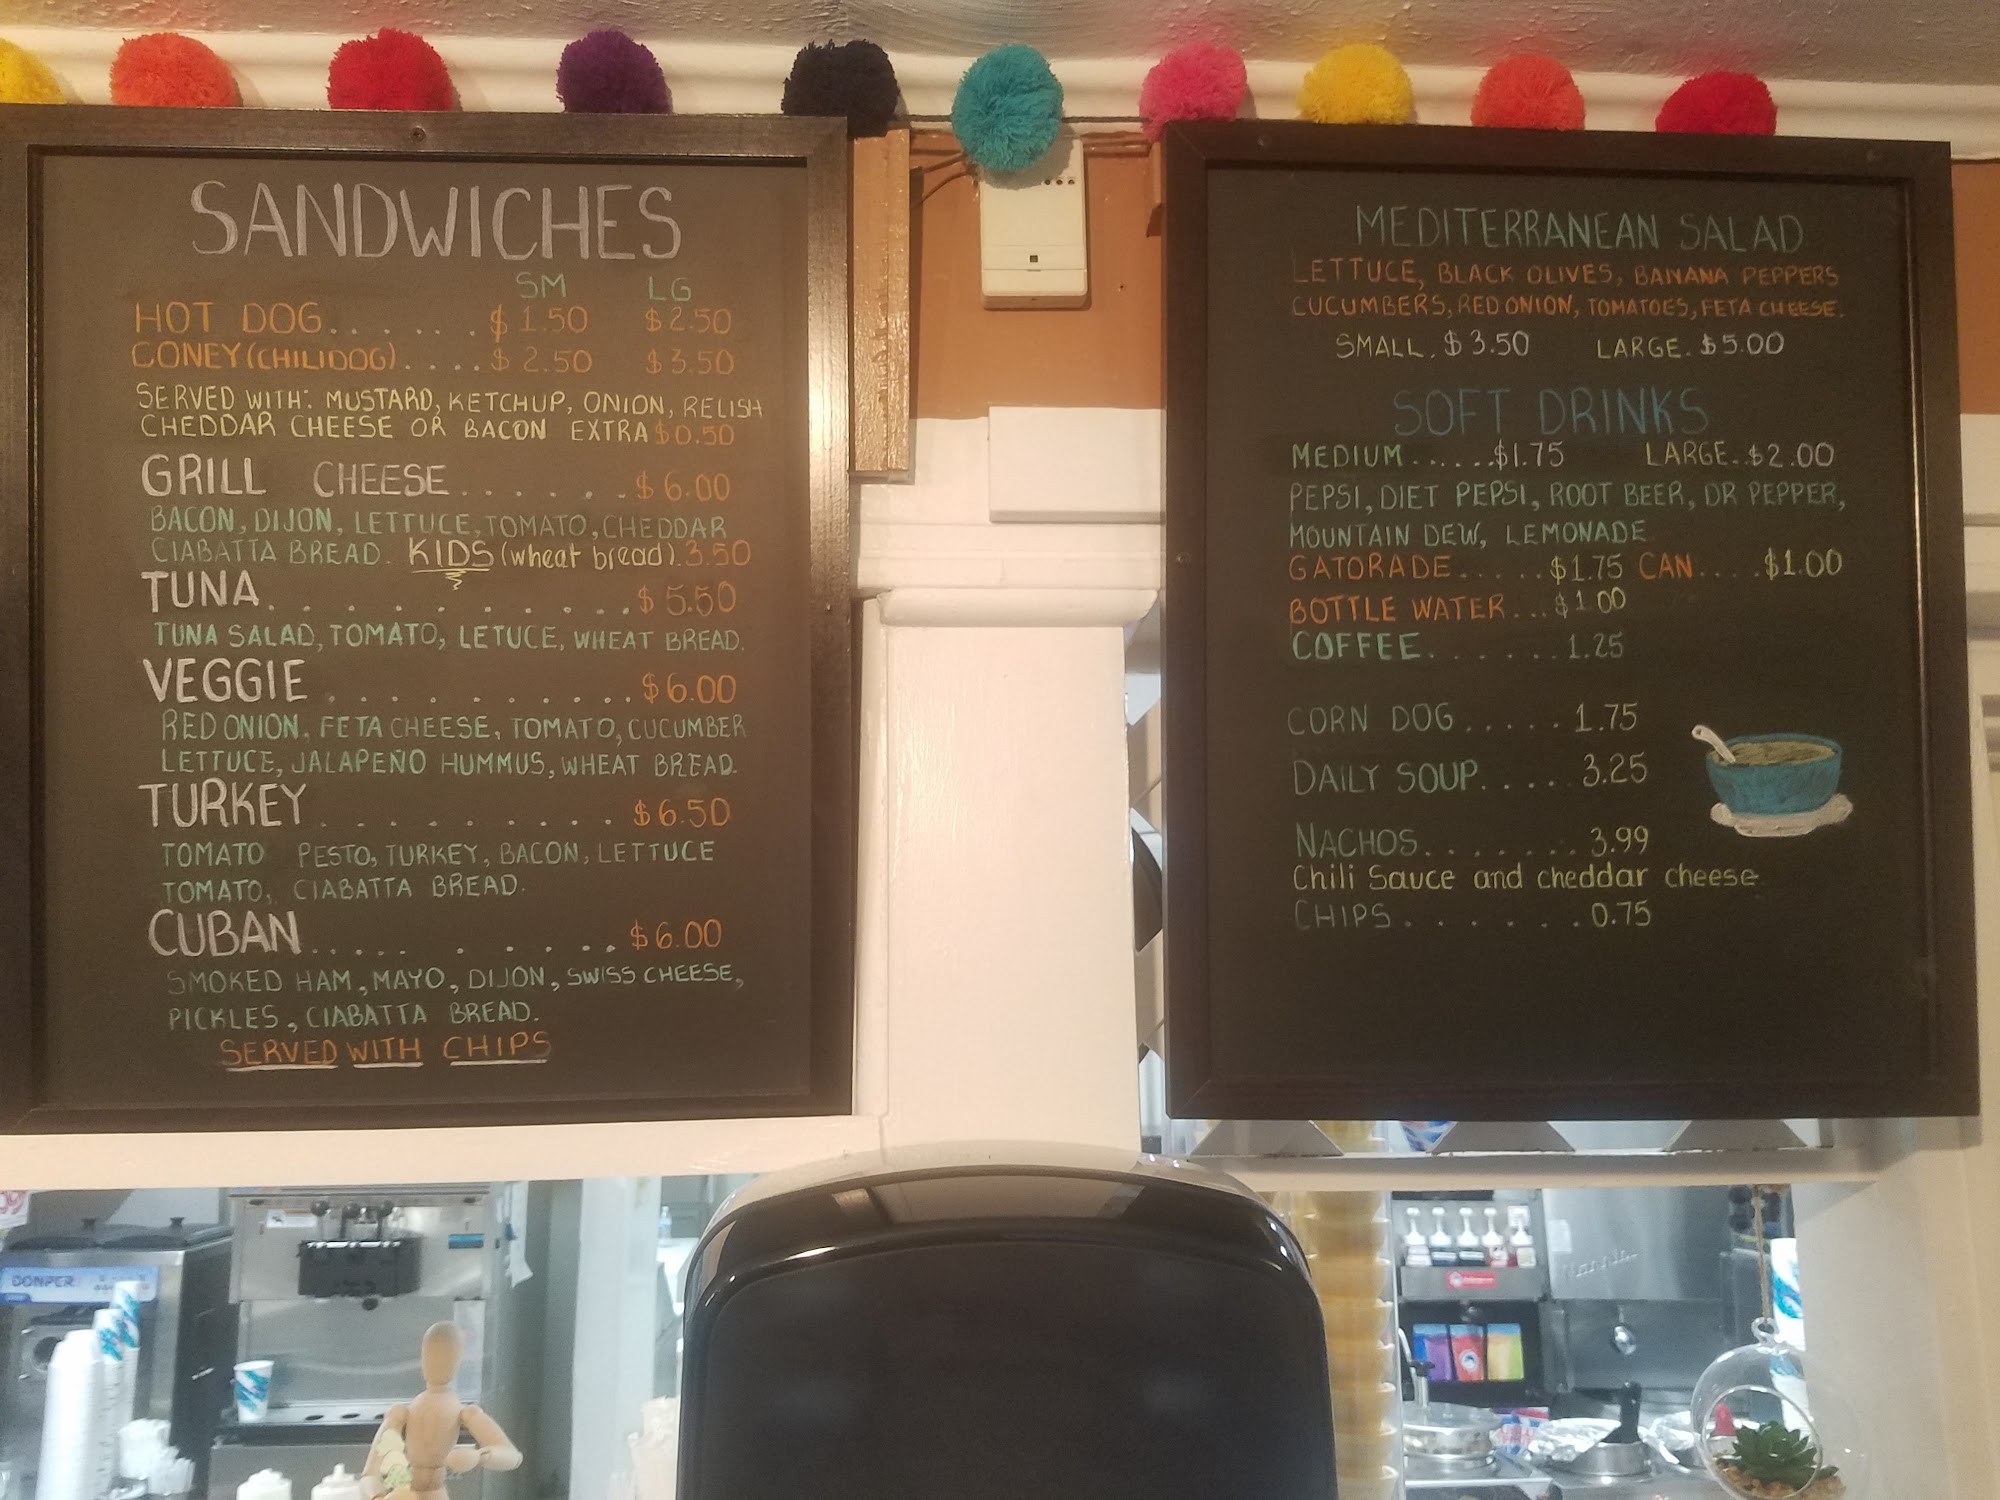 SANDWICHES
SM LG
HOT DOG. . . . . . . $1.50 $2.50
CONEY(CHILIDOG). . . . . $2.50 $3.50
SERVED WITH: MUSTARD, KETCHUP, ONION, RELISH
CHEDDAR CHEESE OR BACON EXTRA $0.50
GRILL CHEESE. . . . . . . $6.00
BACON, DIJON, LETTUCE, TOMATO, CHEDDAR
CIABATTA BREAD. KIDS (wheat bread). 3.50
TUNA. . . . . . . . . . . . . $5.50
TUNA SALAD, TOMATO, LETUCE, WHEAT BREAD.
VEGGIE . . . . . . . . . . . $6.00
RED ONION, FETA CHEESE, TOMATO, CUCUMBER
LETTUCE, JALAPEÑO HUMMUS, WHEAT BREAD.
TURKEY . . . . . . . . . . $6.50
TOMATO PESTO, TURKEY, BACON, LETTUCE
TOMATO, CIABATTA BREAD.
CUBAN. . . . . . . . . . . $6.00
SMOKED HAM, MAYO, DIJON, SWISS CHEESE,
PICKLES, CIABATTA BREAD.
SERVED WITH CHIPS
MEDITERRANEAN SALAD
LETTUCE, BLACK OLIVES, BANANA PEPPERS
CUCUMBERS, RED ONION, TOMATOES, FETA CHEESE.
SMALL. $3.50 LARGE. $5.00
SOFT DRINKS
MEDIUM . . . . . . . $1.75 LARGE. . $2.00
PEPSI, DIET PEPSI, ROOT BEER, DR PEPPER,
MOUNTAIN DEW, LEMONADE
GATORADE. . . . . . $1.75 CAN. . . . . $1.00
BOTTLE WATER. . . $1.00
COFFEE. . . . . . . 1.25
CORN DOG . . . . . . 1.75
DAILY SOUP. . . . . . 3.25
NACHOS. . . . . . . . 3.99
Chili Sauce and cheddar cheese.
CHIPS. . . . . . . . 0.75
DONPER